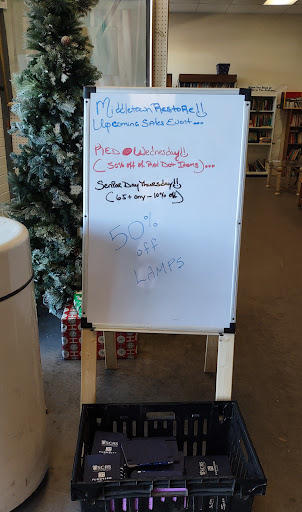 Middletown ReStore!!
Upcoming Sales Event...
RED Wednesday!!
(50% off of Red Dot Items)...
Senior Day Thursday!!
(65+ only - 10% off)
50%
off
LAMPS